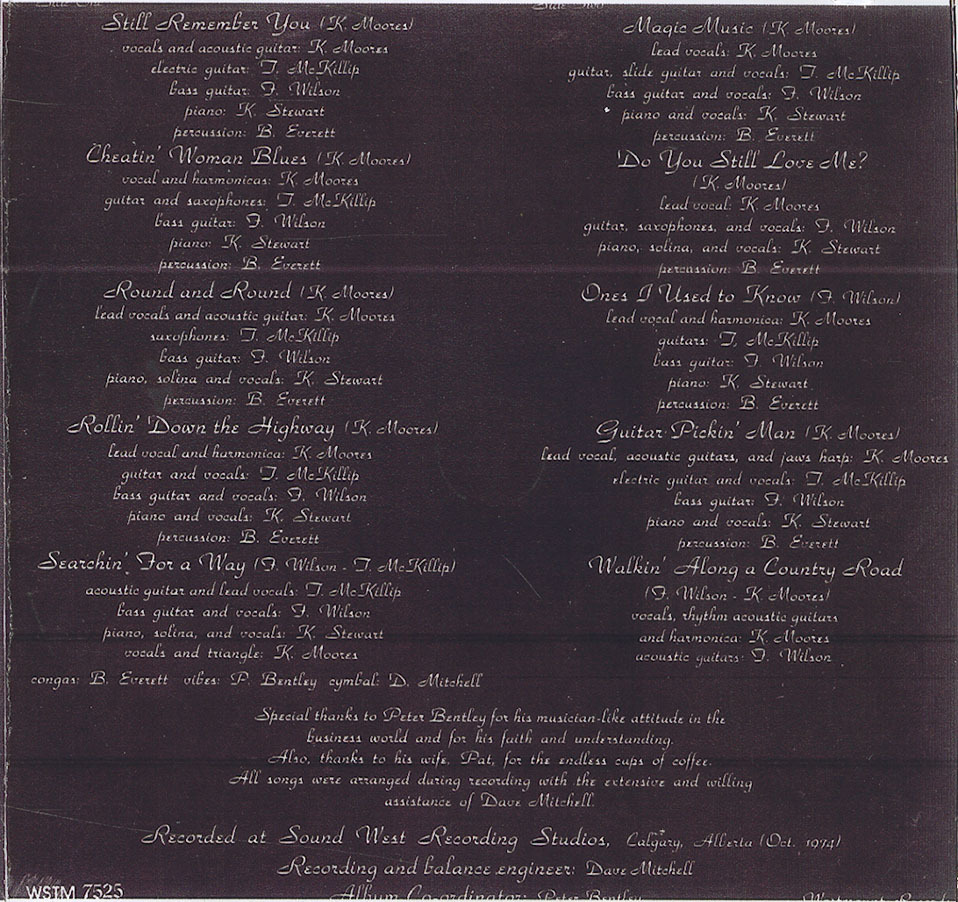 Side One
Still Remember You (K. Moores)
vocals and acoustic guitar: K. Moores
electric guitar: T. McKillip
bass guitar: F. Wilson
piano: K. Stewart
percussion: B. Everett
Cheatin' Woman Blues (K. Moores)
vocal and harmonicas: K. Moores
guitar and saxophones: T. McKillip
bass guitar: F. Wilson
piano: K. Stewart
percussion: B. Everett
Round and Round (K. Moores)
lead vocals and acoustic guitar: K. Moores
saxophones: T. McKillip
bass guitar: F. Wilson
piano, solina and vocals: K. Stewart
percussion: B. Everett
Rollin' Down the Highway (K. Moores)
lead vocal and harmonica: K. Moores
guitar and vocals: T. McKillip
bass guitar and vocals: F. Wilson
piano and vocals: K. Stewart
percussion: B. Everett
Searchin' For a Way (F. Wilson - T. McKillip)
acoustic guitar and lead vocals: T. McKillip
bass guitar and vocals: F. Wilson
piano, solina, and vocals: K. Stewart
vocals and triangle: K. Moores
congas: B. Everett vibes: P. Bentley cymbal: D. Mitchell
Side Two
Magic Music (K. Moores)
lead vocals: K. Moores
guitar, slide guitar and vocals: T. McKillip
bass guitar and vocals: F. Wilson
piano and vocals: K. Stewart
percussion: B. Everett
Do You Still Love Me?
(K. Moores)
lead vocal: K. Moores
guitar, saxophones, and vocals: F. Wilson
piano, solina, and vocals: K. Stewart
percussion: B. Everett
Ones I Used to Know (F. Wilson)
lead vocal and harmonica: K. Moores
guitars: T, McKillip
bass guitar: F. Wilson
piano: K. Stewart
percussion: B. Everett
Guitar Pickin' Man (K. Moores)
lead vocal, acoustic guitars, and jaws harp: K. Moores
electric guitar and vocals: T. McKillip
bass guitar: F. Wilson
piano and vocals: K. Stewart
percussion: B. Everett
Walkin' Along a Country Road
(F. Wilson - K. Moores)
vocals, rhythm acoustic guitars
and harmonica: K. Moores
acoustic guitars: F. Wilson
Special thanks to Peter Bentley for his musician-like attitude in the
business world and for his faith and understanding.
Also, thanks to his wife, Pat, for the endless cups of coffee.
All songs were arranged during recording with the extensive and willing
assistance of Dave Mitchell.
Recorded at Sound West Recording Studios, Calgary, Alberta (Oct. 1974)
Recording and balance engineer: Dave Mitchell
WSTM 7525
Album Co-ordinator: Peter Bentley